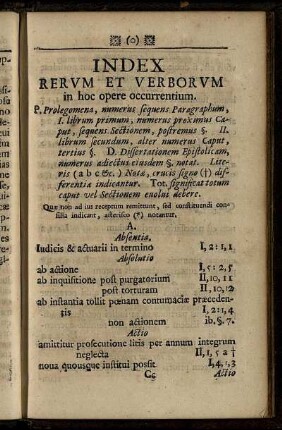 (o)
INDEX
RERVM ET VERBORVM
in hoc opere occurrentium.
P. Prolegomena, numerus sequens Paragraphum,
I. librum primum, numerus proximus Ca-
put, sequens Sectionem, postremus §. II.
librum secundum, alter numerus Caput,
tertius §. D. Dissertationem Epistolicam,
numerus adiectus eiusdem §. notat. Lite-
ris (a b c &c.) Nota, crucis signo (†) dif-
ferentia indicantur. Tot. significat totum
caput vel Sectionem euolui debere.
Quæ non ad ius receptum remittunt, sed constituendi con-
silia indicant, asterisco (*) notantur.
A.
Absentia.
Iudicis & actuarii in termino I, 2: 1, 1
Absolutio
ab actione I, 5: 2, 5
ab inquisitione post purgatorium II, 10, 11
post torturam II, 10, 12
ab instantia tollit pœnam contumaciæ præceden-
tis I, 2: 1, 4
non actionem ib. §. 7.
Actio
amittitur prosecutione litis per annum integrum
neglecta II, 1, 5 a †
noua quousque institui possit I, 4, 1, 3
Cc Actio